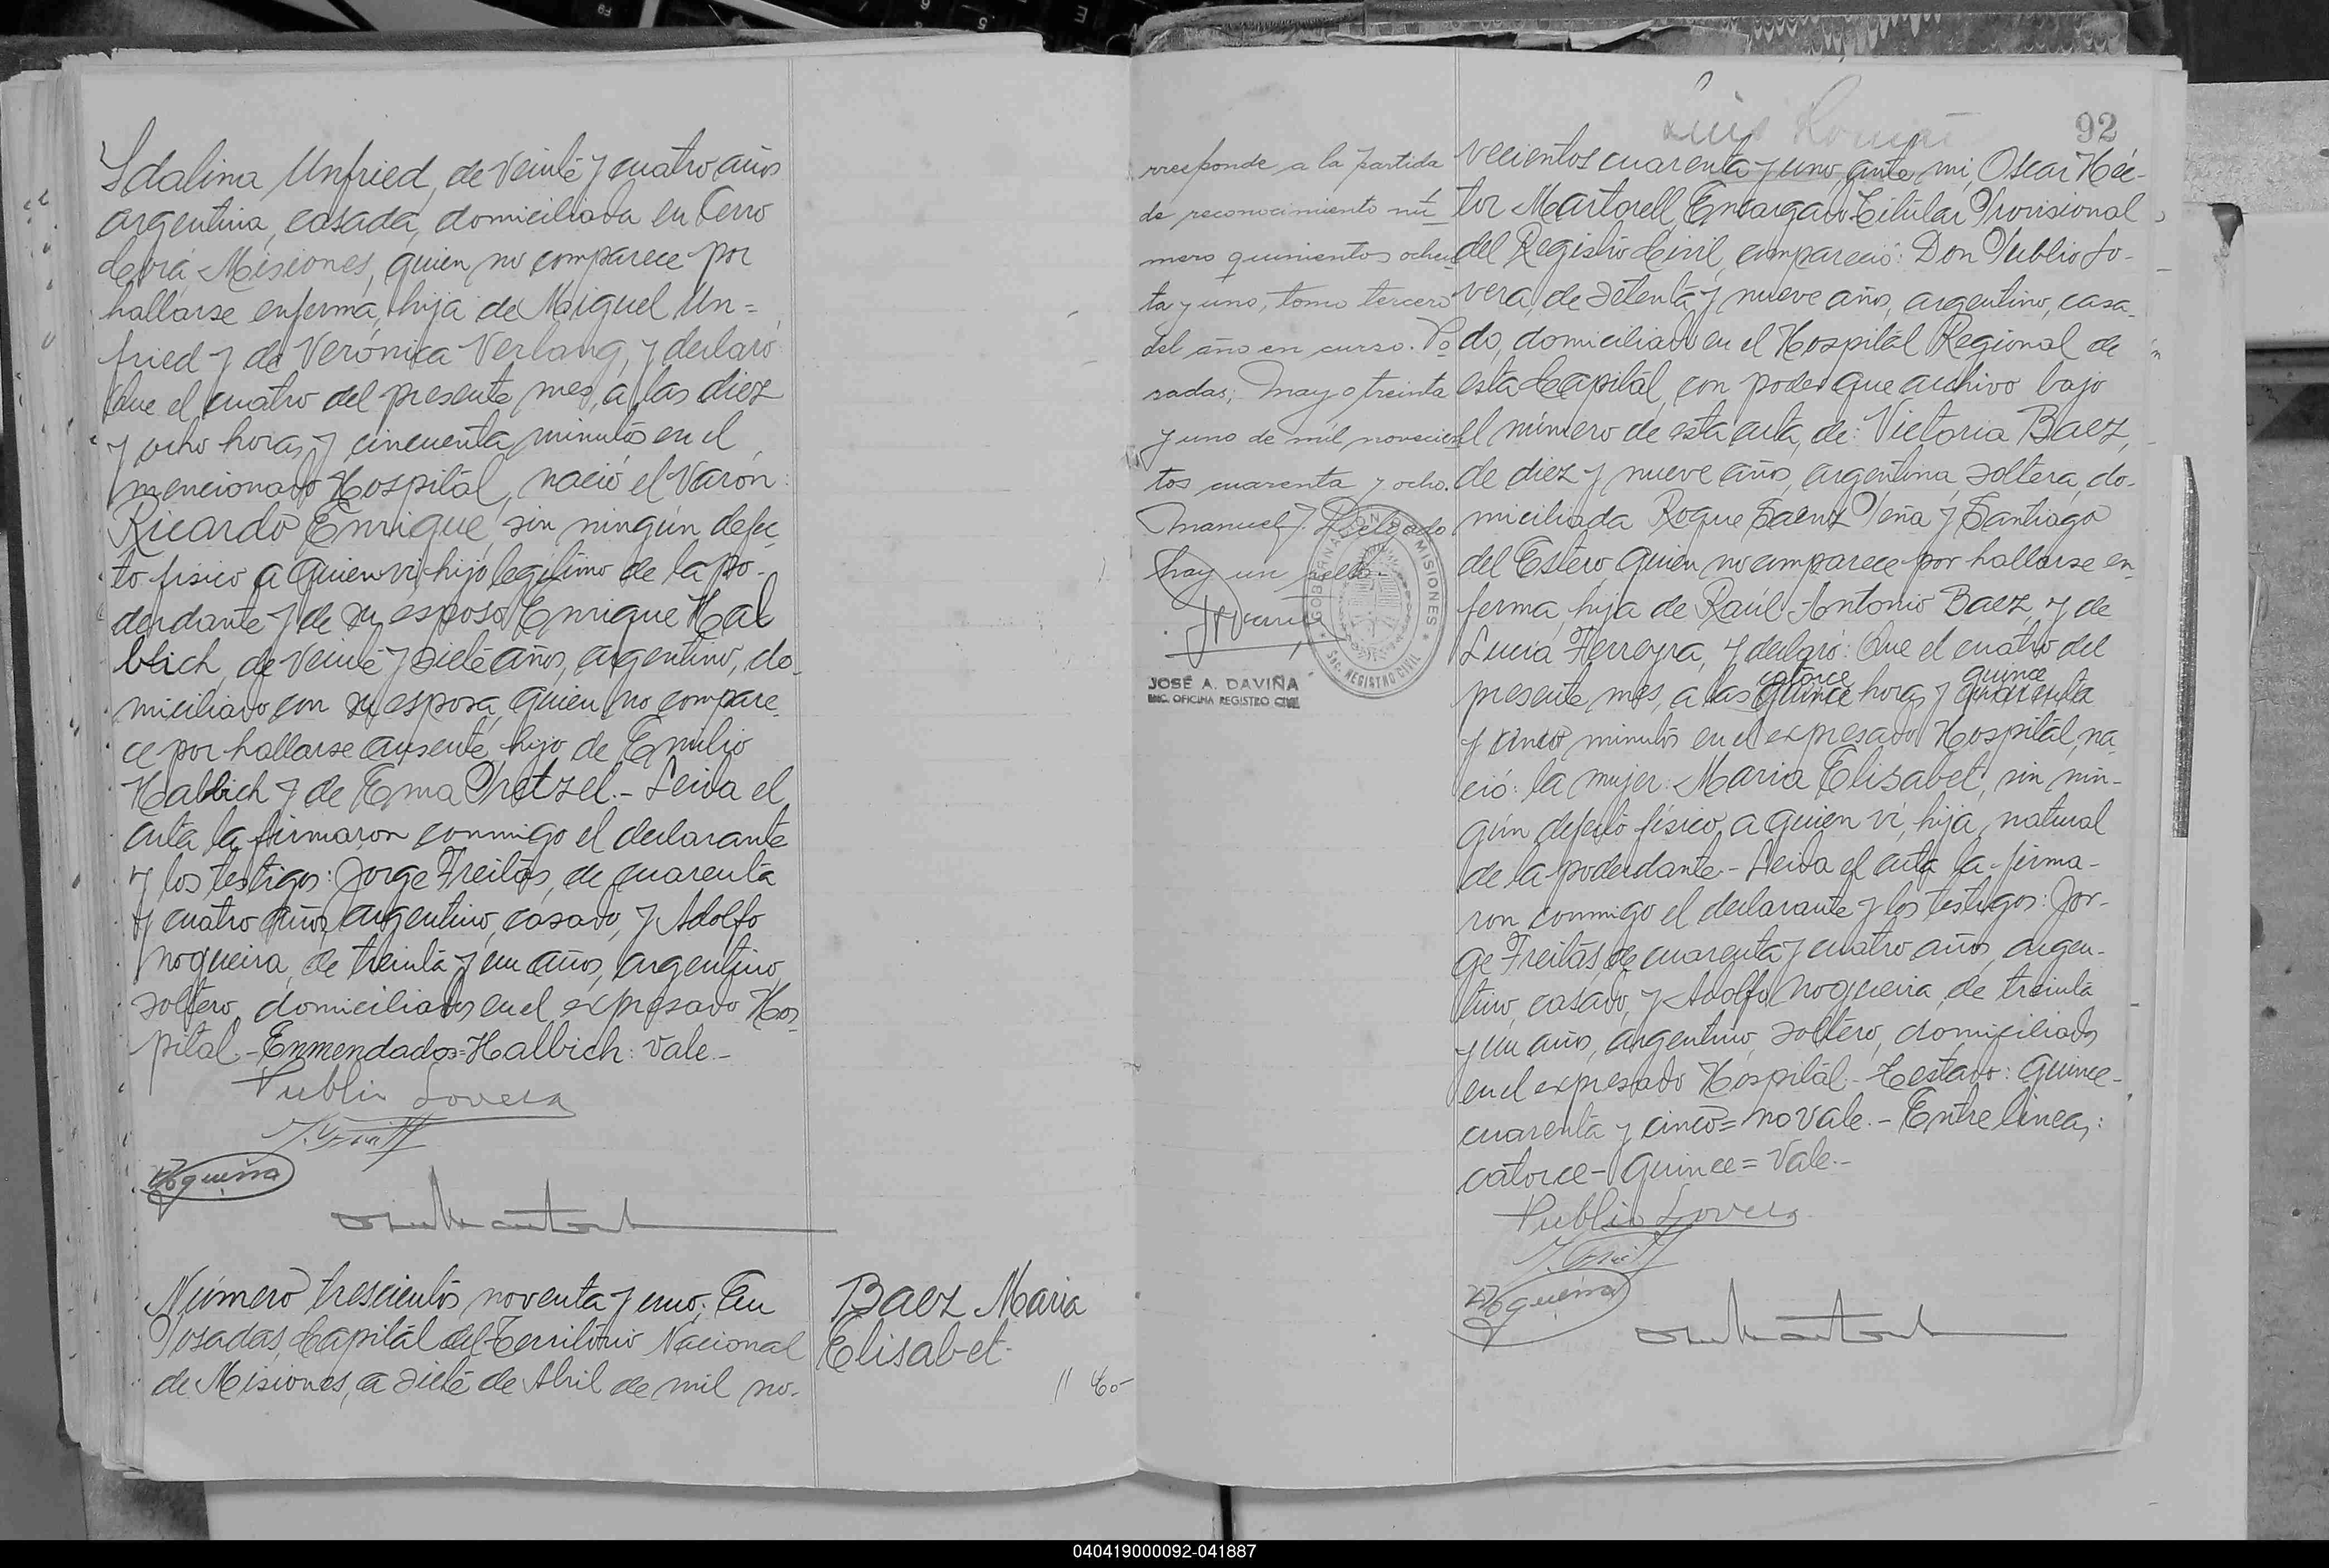 Idalina Unfried, de veinte y cuatro años
argentina, casada, domiciliada en Cerro
Corá Misiones, quien no comparece por
hallarse enferma, hija de Miguel Un=
fried y de Verónica Verlang, y declaró
Que el cuatro del presente mes, a las diez
y ocho horas y cincuenta minutos en el
mencionado Hospital, nació el varón:
Ricardo Enrique, sin ningún defec-
to físico a quien vi, hijo legítimo de la po-
derdante y de su esposo Enrique Hal
bich, de veinte y siete años, argentino, do-
miciliado con su esposa, quien no compare-
ce por hallarse ausente, hijo de Emilio
Halbich y de Ema Pretzel.- Leida el
acta la firmaron conmigo el declarante
y los testigos: Jorge Freitas, de cuarenta
y cuatro años, argentino, casado, y Adolfo
Nogueira, de treinta y un años, argentino,
soltero, domiciliados en el expresado Hos-
pital.- Enmendados=Halbich: vale.-
Publio Lovera
Nogueira
Número trescientos noventa y uno: En
Posadas, Capital del Territorio Nacional
de Misiones, a siete de Abril de mil no-
Baez Maria
Elisabet-
92
rresponde a la partida
de reconocimiento nú
mero quinientos ochen
ta y uno, tomo tercero
del año en curso. Po
sadas; mayo treinta
y uno de mil novecien
tos cuarenta y ocho.
Manuel J. Delgado
hay un sello.-
GOBERNACION DE MISIONES
SEC. REGISTRO CIVIL
JOSÉ A. DAVIÑA
ENC. OFICINA REGISTRO CIVIL
vecientos cuarenta y uno, ante mi, Oscar Héc-
tor Martorell, Encargado Titular Provisional
del Registro Civil, compareció: Don Publio Lo-
vera, de setenta y nueve años, argentino, casa-
do, domiciliado en el Hospital Regional de
esta Capital, con poder que archivo bajo
el número de esta acta, de: Victoria Baez,
de diez y nueve años, argentina, soltera, do-
miciliada Roque Saenz Peña y Santiago
del Estero, quien no comparece por hallarse en-
ferma, hija de Raúl Antonio Baez, y de
Lucia Ferreyra, y declaró: Que el cuatro del
catorce quince
presente mes, a las quince horas y cuarenta
y cinco minutos en el expresado Hospital, na-
ció: la mujer: Maria Elisabet, sin nin-
gún defecto físico, a quien vi, hija natural
de la poderdante.- Leida el acta la firma-
ron conmigo el declarante y los testigos: Jor-
ge Freitas, de cuarenta y cuatro años, argen-
tino, casado, y Adolfo Nogueira, de treinta
y un años, argentino, soltero, domiciliados
en el expresado Hospital.- Testado: quince-
cuarenta y cinco= no vale.- Entre lineas:
catorce- quince= vale.-
Publio Lovera
Nogueira
040419000092-041887